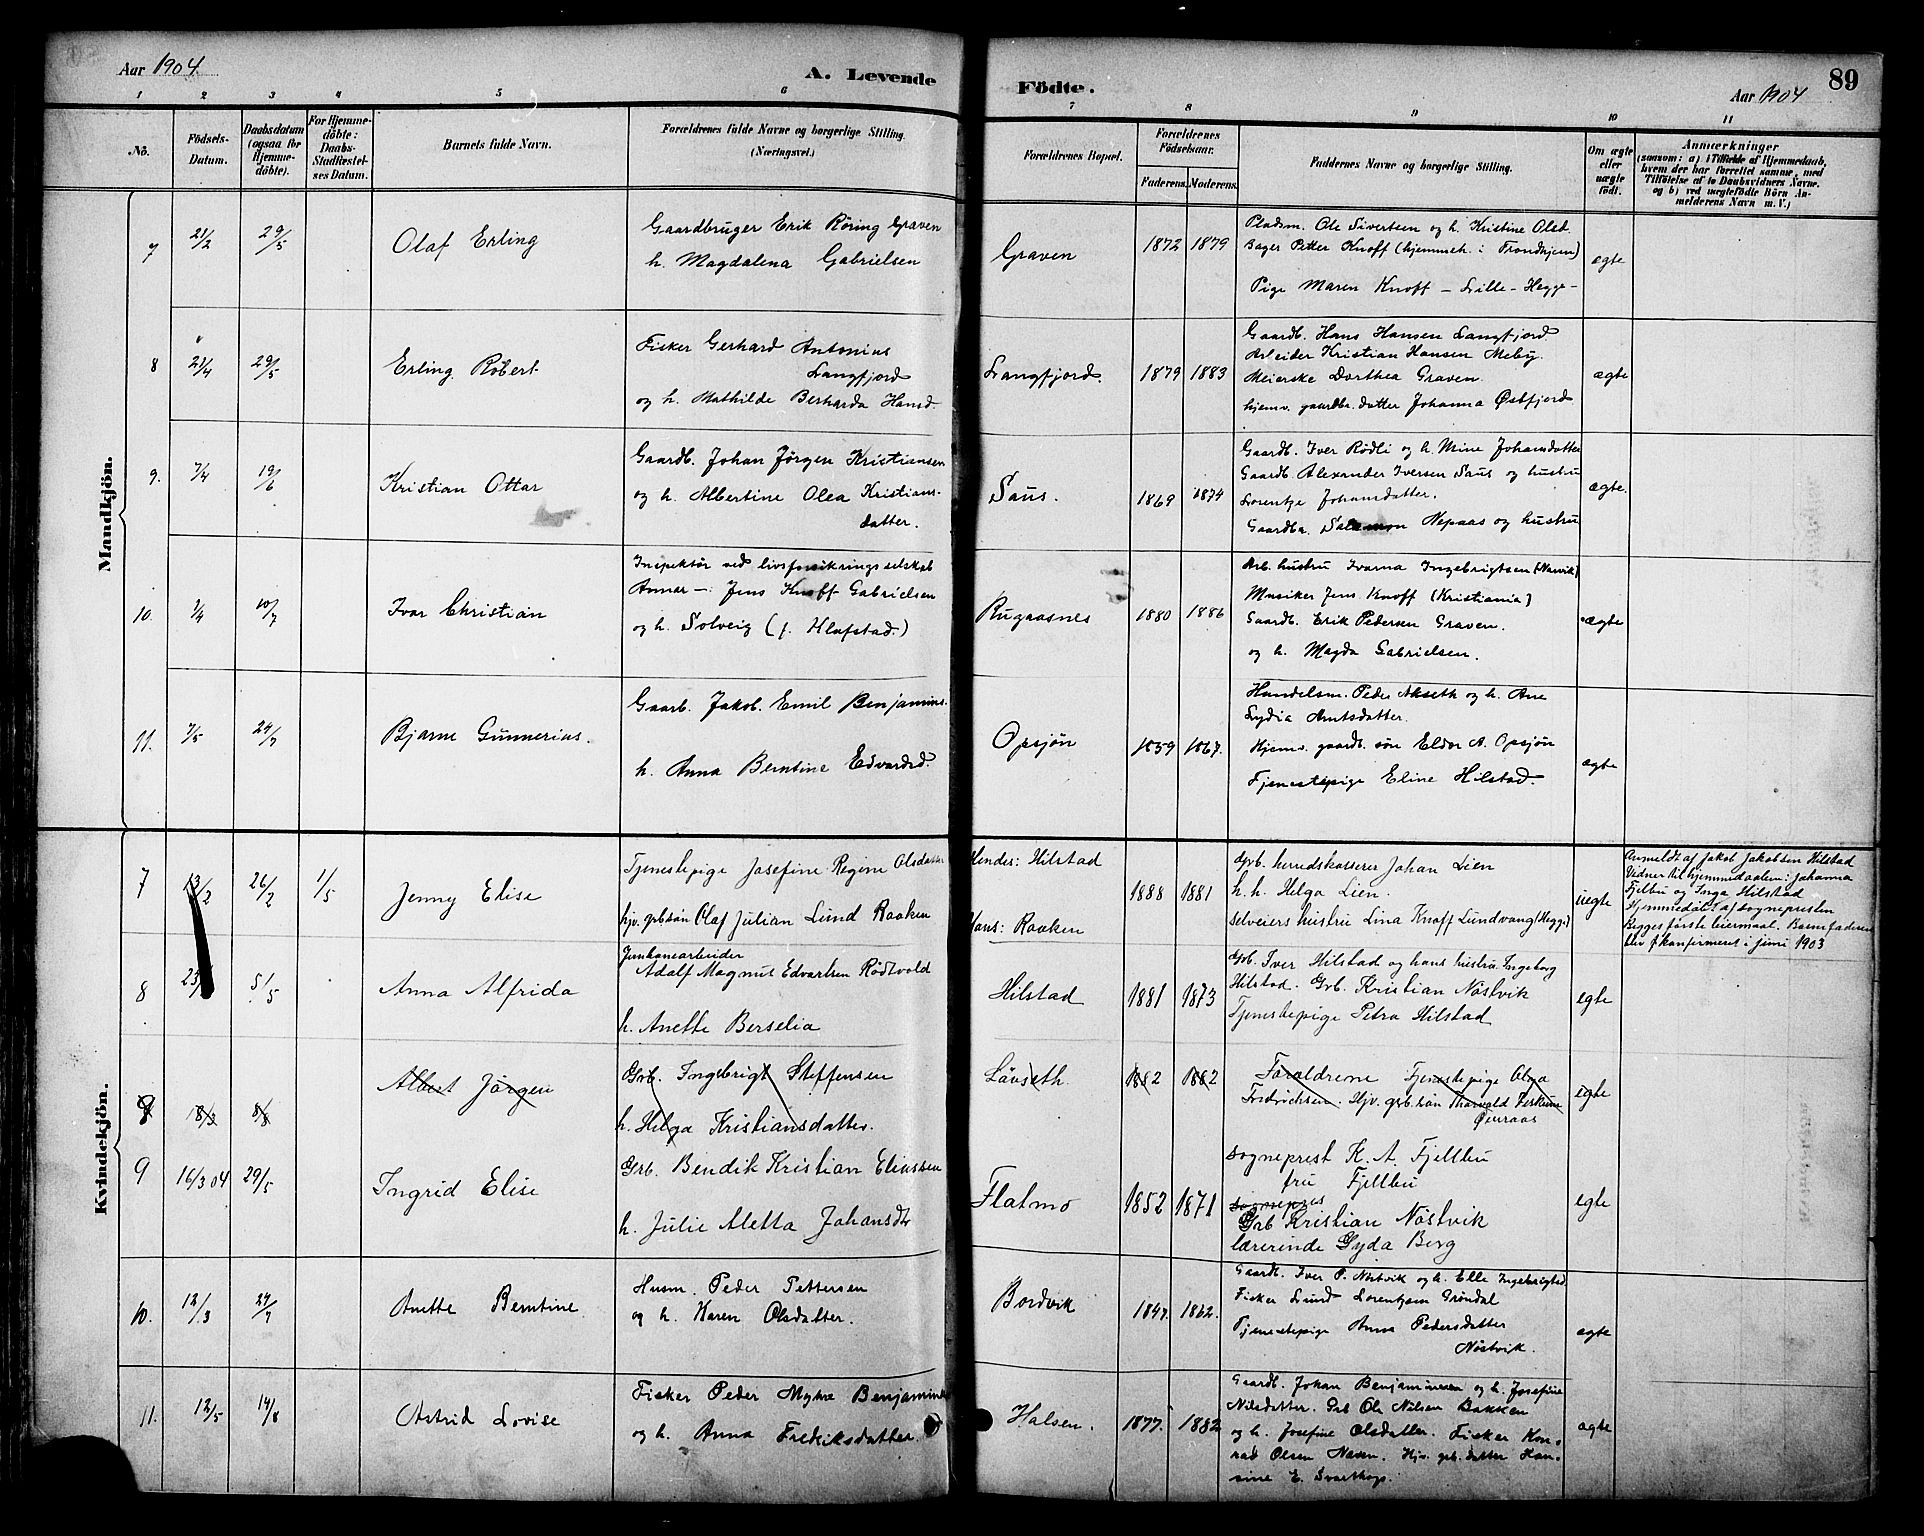 Aar 1904.
A. Levende
Födte.
Aar 1904
89
1 2 3 4 5 6 7 8 9 10 11
No.
Födsels-
Datum.
Daabsdatum
(ogsaa for
Hjemme-
döbte).
For Hjemme-
döbte:
Daabs-
Stadfæstel-
ses Datum.
Barnets fulde Navn.
Forældrenes fulde Navne og borgerlige Stilling.
(Næringsvei.)
Forældrenes Bopæl.
Forældrenes
Födselsaar.
Faderens. Moderens.
Faddernes Navne og borgerlige Stilling.
Om ægte
eller
uægte
födt.
Anmærkninger
(saasom: a) i Tilfælde af Hjemmedaab,
hvem der har forrettet samme, med
Tilföielse af to Daabsvidners Navne,
og b) ved uægtefödte Börn An-
melderens Navn m. V.)
Mandkjön.
7 21/2 29/5 Olaf Erling
Gaardbruger Erik Röring Graven
h. Magdalena Gabrielsen
Graven 1872 1879
Pladsm. Ole Sivertsen og h. Kristine Olsd.
Bager Petter Knoff (hjemmeh. i Trondhjem)
Pige Maren Knoff - Lille-Hegge-
ægte
8 21/4 29/5 Erling Robert
Fisker Gerhard Antonius
Langfjord
og h. Mathilde Berharda Hansd.
Langfjord. 1879 1883
Gaardb. Hans Hansen Langfjord
Arbeider Kristian Hansen Meby.
Meierske Dorthea Graven.
hjemv. gaardbr. datter Johanna Østfjord
ægte
9. 7/4 19/6 Kristian Ottar
Gaardb. Johan Jörgen Kristiansen
og h. Albertine Olea Kristians-
datter.
Saus. 1869 1874
Gaardb. Iver Rödli og h. Mine Johansdatter
Gaardb. Alexander Iversen Saus og hustru
Lorentze Johansdatter.
Gaardbr. Salamon Nepaas og hustru
ægte.
10. 1/4 10/7 Ivar Christian
Inspektör ved livsforsikringsselskab
Anmar -: Jens Knoff Gabrielsen
og h. Solveig (f. Hlafstad.)
Rugaasnes 1880 1886
Arb. hustru Ivarna Ingebrigtsen (Narvik)
Musiker Jens Knoff (Kristiania)
Gaardb. Erik Pedersen Graven.
og h. Magda Gabrielsen.
ægte
11. 7/5 24/7 Bjarne Gunnerius.
Gaarb. Jakob. Emil Benjamins.
h. Anna Berntine Edvardsd.
Opsjön 1859 1867.
Handelsm. Peder Akseth og h. Ane
Lydia Arntsdatter.
Hjemv. gaardb. sön Eldor A. Opsjön
Tjenestepige Eline Hilstad.
ægte
Kvindekjön.
7 13/2 26/2 1/5 Jenny Elise
Tjenestepige Josefine Regine Olsdatter
hjv. grb. sön Olaf Julian Lund Raaken
Hendes: Hilstad
Hans: Raaken
1888 1881
grb. herredskasserer Johan Lien
h. h. Helga Lien.
selveiers hustru Lina Knoff Lundvang (Hegge)
uegte
Anmeldt af Jakob Jakobsen Hilstad
Vidner til hjemmedaaben: Johanna
Fjeltbu og Inga Hilstad
Hjemmedöbt af sognepresten
Begges förste leiermaal. Barnefaderen
blev konfirmeret i juni 1903
8 5/5 Anna Alfrida
Jernbanearbeider
Adolf Magnus Edvartsen Rödtvold
h. Anette Berselia
Hilstad 1881 1873
Grb. Iver Hilstad og hans hustru Ingeborg
Hilstad. Grb. Kristian Nöstvik
Tjenestepige Petra Hilstad
egte
9 18/3 8/8 Albert Jörgen
Grb. Ingebrigt Steffensen
h. Helga Kristiansdatter.
Lövseth. 1882 1882
Foraldrene Tjenestepige Olga
Fredrichsen. Hjv. grb. sön Tharvald
egte
9 16/3 04 29/5 Ingrid Elise
Grb. Bendik Kristian Eliassen
h. Julie Aletta Johansdtr
Flatmo 1852 1871
sogneprest K. A. Fjeltbu
fru Fjeltbu
sognepres
Grb Kristian Nöstvik
lærerinde Gyda Berg
egte
10. 12/3 24/7 Anette Berntine
Husm. Peder Pettersen
og h. Karen Olsdatter.
Bordvik 1847. 1862.
Gaardb. Iver P. Nöstvik og h. Elle Ingebrigtsd.
Fisker Lund Lorentzen Gröndal
Tjenestepige Anna Pedersdatter
Nöstvik.
ægte
11. 12/5 14/8 Astrid Lovise
Fisker Peder Myhre Benjamins
og h. Anna Fredriksdatter.
Halsen. 1877. 1882
Gaardb. Johan Benjaminsen og h. Josefine
Nilsdatter. Grb Ole Nilsen Bakken
og h. Josefine Olsdatter. Fisker Kon-
rad Olsen Naven. Hjv. grb. datter Han-
sine E. Svarthop.
ægte